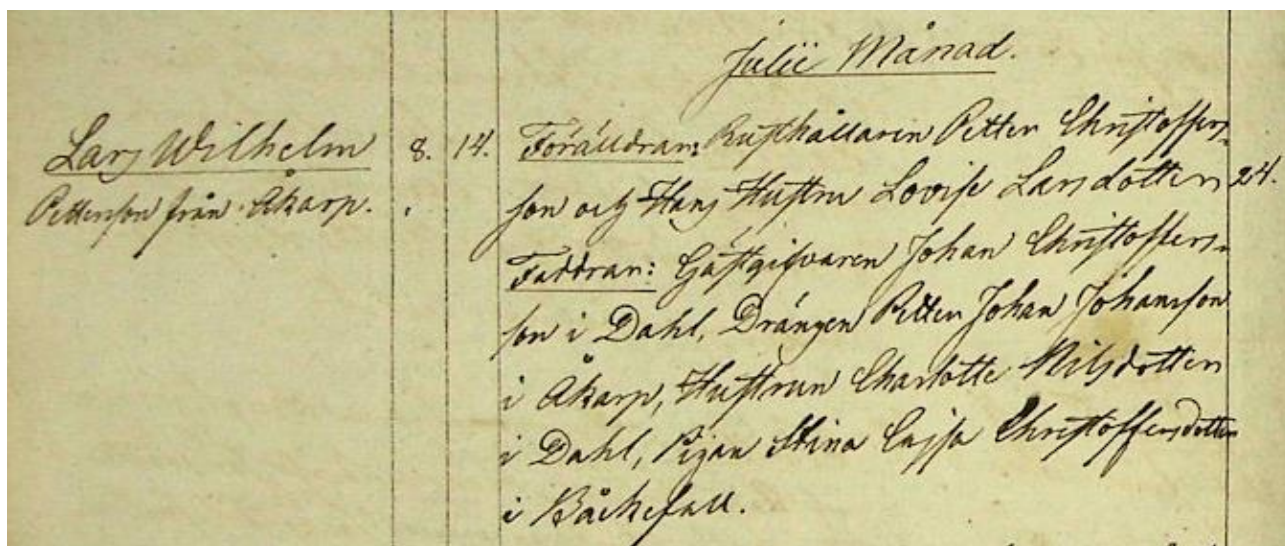 Julii Månad.
Lars Wilhelm 8. 14. Föräldrar: Rusthållaren Petter Christoffers-
Petterson från Åkarp. son och Hans Hustru Lovise Larsdotter 24.
Faddrar: Gästgifvaren Johan Christoffers-
son i Dahl, Drängen Petter Johan Johansson
i Åkarp, Hustrun Charlotte Nilsdotter
i Dahl, Pigan Stina Cajsa Christoffersdotter
i Bäckefall.